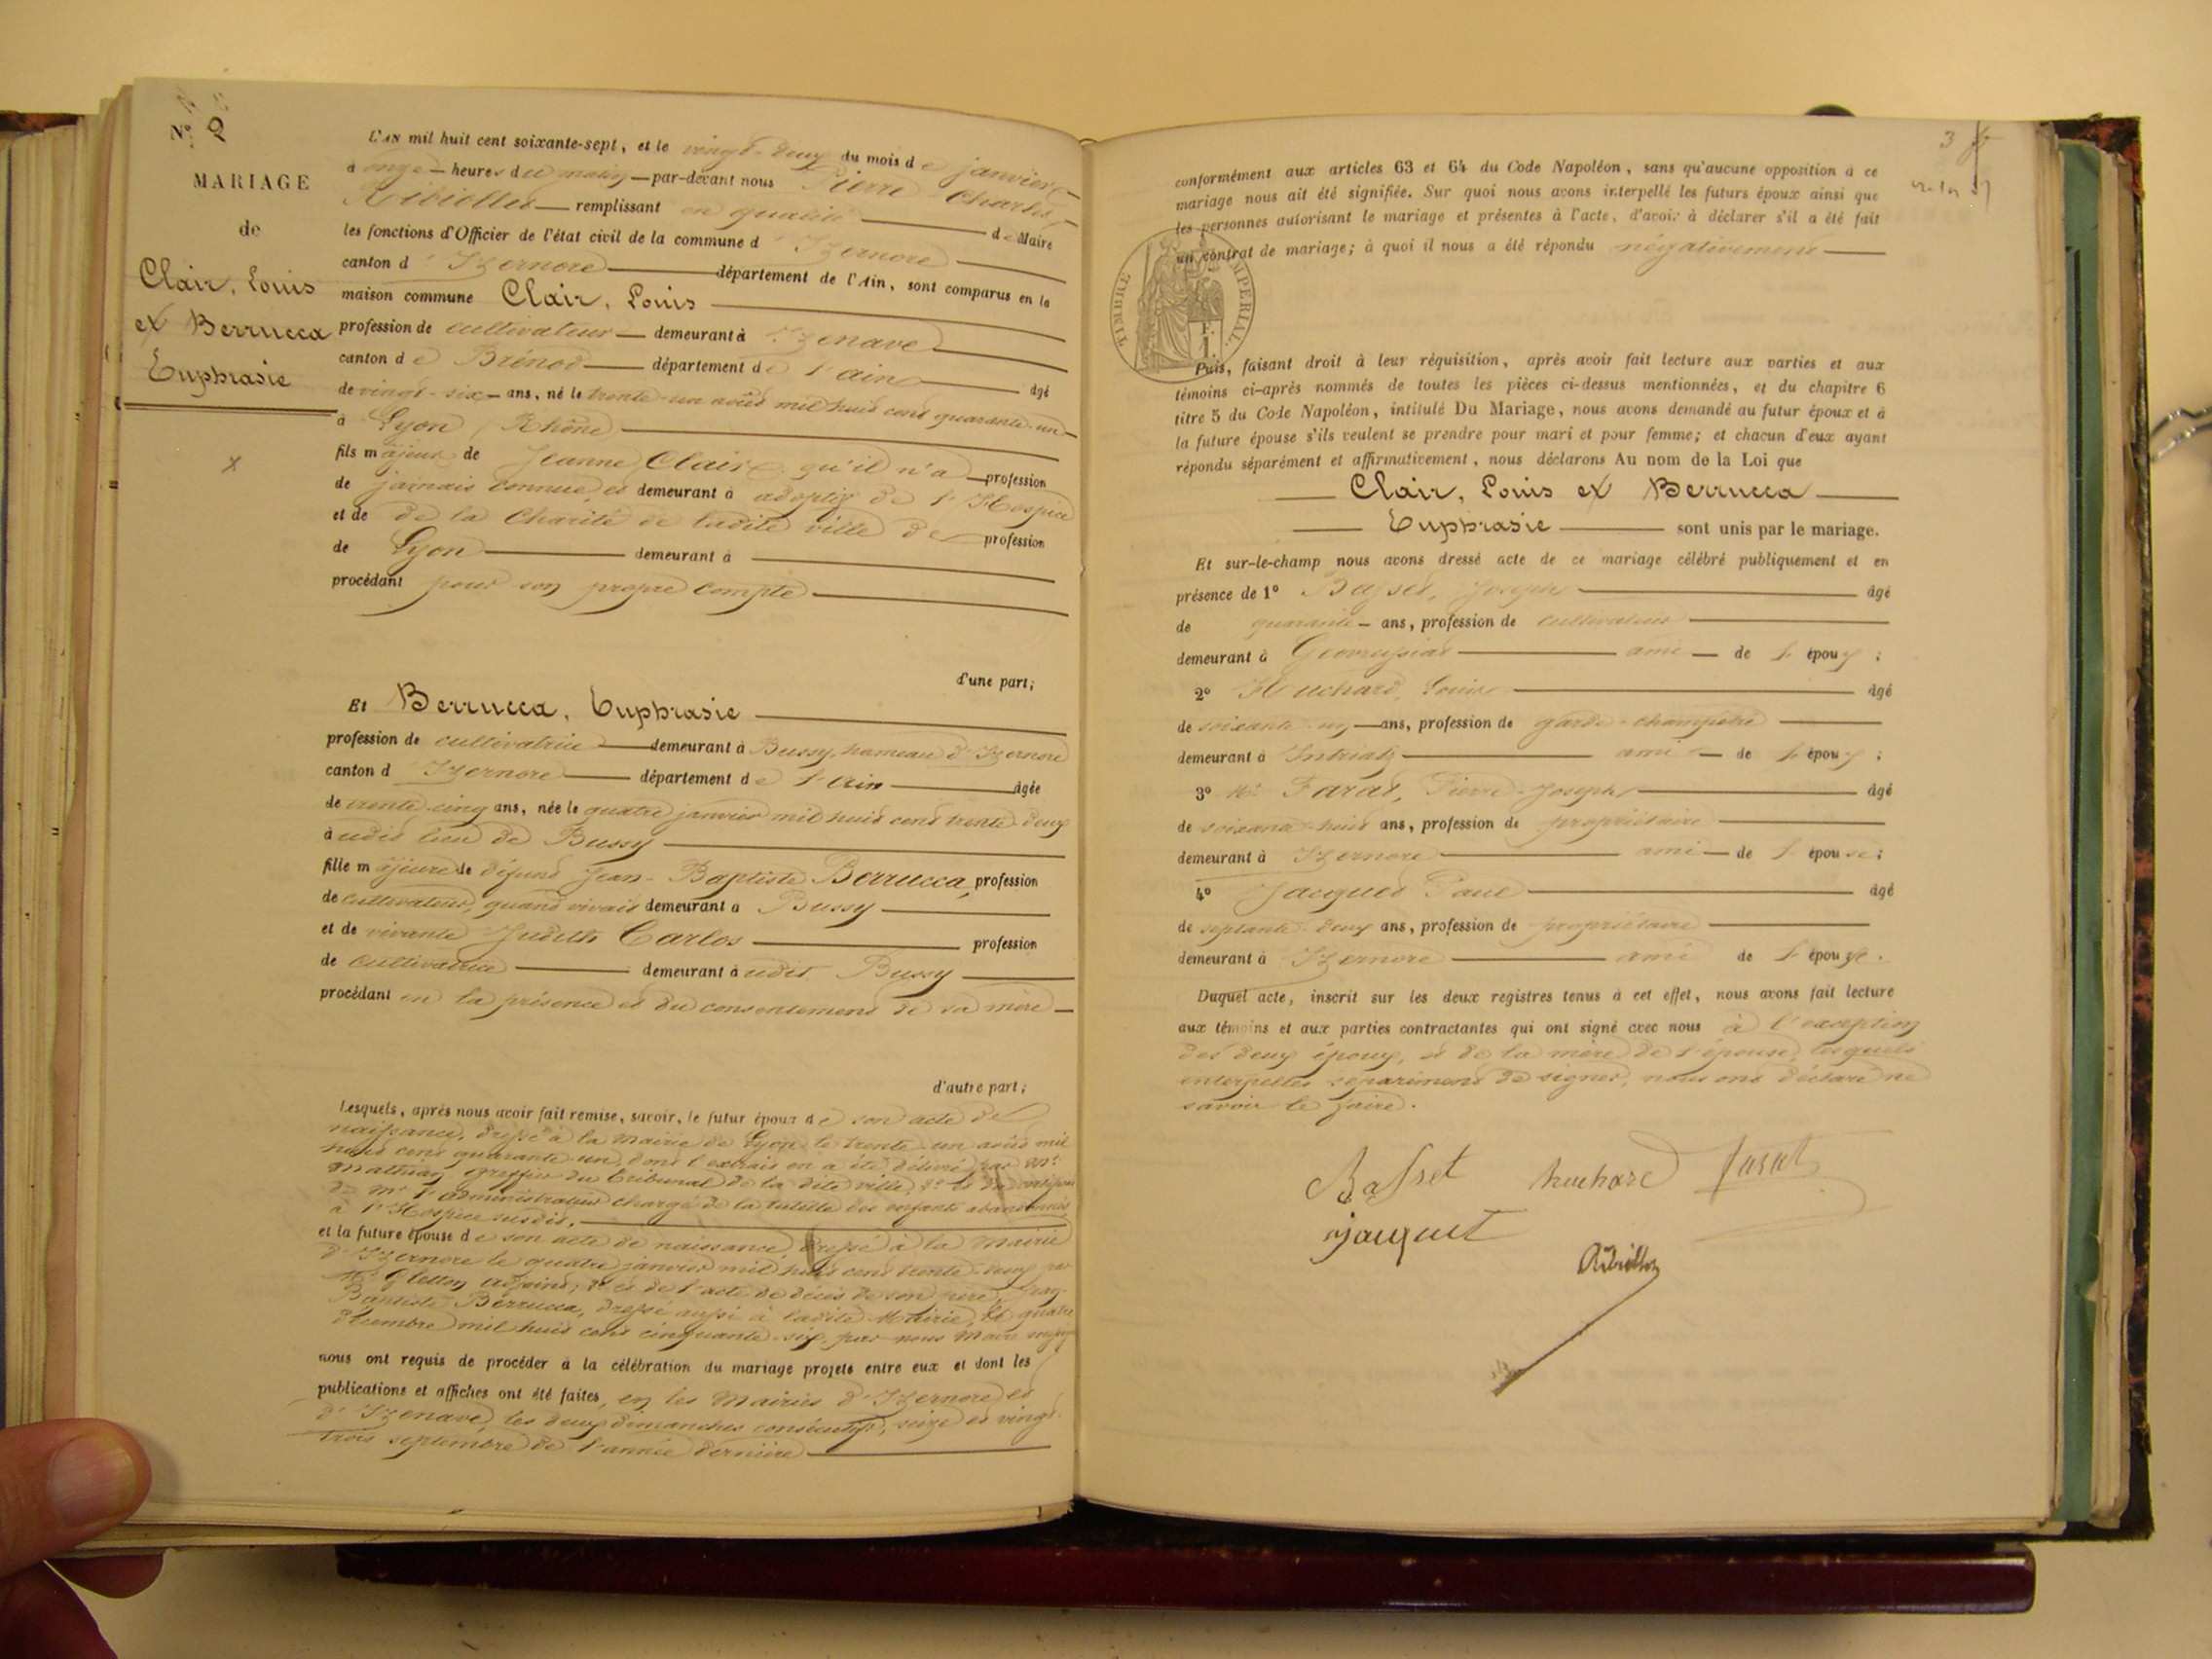 N° 2
MARIAGE
de
Clair, Louis
et Berrucca
Euphrasie
L'AN mil huit cent soixante-sept, et le vingt-deux du mois de janvier
à onze heures du matin par-devant nous Pierre Charles
Ribiollet remplissant en qualité de Maire
les fonctions d'Officier de l'état civil de la commune d'Izernore
canton d'Izernore département de l'Ain, sont comparus en la
maison commune Clair, Louis
profession de cultivateur demeurant à Izenave
canton de Brénod département de l'ain âgé
de vingt-six ans, né le trente-un août mil huit cent quarante-un
à Lyon, Rhône
fils majeur de Jeanne Clair qu'il n'a profession
de jamais connue, et demeurant à adoptif de l'Hospice
et de de la Charité de ladite ville de profession
de Lyon demeurant à
procédant pour son propre compte
d'une part;
Et Berrucca, Euphrasie
profession de cultivatrice demeurant à Bussy, hameau d'Izernore
canton d'Izernore département de l'Ain âgée
de trente-cinq ans, née le quatre janvier mil huit cent trente-deux
à udit lieu de Bussy
fille majeure de défunt Jean-Baptiste Berrucca, profession
de cultivateur, quand vivait demeurant à Bussy
et de vivante Judith Carlos profession
de cultivatrice demeurant à udit Bussy
procédant en la présence et du consentement de sa mère
d'autre part;
Lesquels, après nous avoir fait remise, savoir, le futur époux de son acte de
naissance, dressé à la Mairie de Lyon le trente-un août mil
huit cent quarante-un, dont l'extrait en a été délivré par Mr
Mathian greffier du Tribunal de la dite ville, 2° et du
de Mr l'administrateur chargé de la tutelle des enfants abandonnés
à l'Hospice susdit,
et la future épouse de son acte de naissance, dressé à la Mairie
d'Izernore le quatre janvier mil huit cent trente-deux par
Mr Gletton adjoint; 2° et de l'acte de décès de son père, Jean-
Baptiste Berrucca, dressé aussi à ladite Mairie, le quatre
mil huit cent cinquante-six, par nous Maire
nous ont requis de procéder à la célébration du mariage projeté entre eux et dont les
publications et affiches ont été faites, en les Mairies d'Izernore et
d'Izenave, les deux dimanches consécutifs, seize et vingt-
trois septembre de l'année dernière
3
conformément aux articles 63 et 64 du Code Napoléon, sans qu'aucune opposition à ce
mariage nous ait été signifiée. Sur quoi nous avons interpellé les futurs époux ainsi que
les personnes autorisant le mariage et présentes à l'acte, d'avoir à déclarer s'il a été fait
un contrat de mariage; à quoi il nous a été répondu négativement
TIMBRE IMPERIAL
Puis, faisant droit à leur réquisition, après avoir fait lecture aux parties et aux
témoins ci-après nommés de toutes les pièces ci-dessus mentionnées, et du chapitre 6
titre 5 du Code Napoléon, intitulé Du Mariage, nous avons demandé au futur époux et à
la future épouse s'ils veulent se prendre pour mari et pour femme; et chacun d'eux ayant
répondu séparément et affirmativement, nous déclarons Au nom de la Loi que
Clair, Louis et Berrucca
Euphrasie sont unis par le mariage.
Et sur-le-champ nous avons dressé acte de ce mariage célébré publiquement et en
présence de 1° Basset, Joseph âgé
de quarante ans, profession de cultivateur
demeurant à Geovressiat ami de l'époux;
2° Huchard, Louis âgé
de soixante-un ans, profession de garde-champêtre
demeurant à Intriatz ami de l'époux;
3° Mr Farat, Pierre-Joseph âgé
de soixante-huit ans, profession de propriétaire
demeurant à Izernore ami de l'épouse;
4° Jacquet Paul âgé
de septante-deux ans, profession de propriétaire
demeurant à Izernore ami de l'épouse.
Duquel acte, inscrit sur les deux registres tenus à cet effet, nous avons fait lecture
aux témoins et aux parties contractantes qui ont signé avec nous à l'exception
des deux époux, et de la mère de l'épouse, lesquels
interpellés séparément de signer, nous ont déclaré ne
savoir le faire.
Basset huchard farat
jacquet
Ribiollet